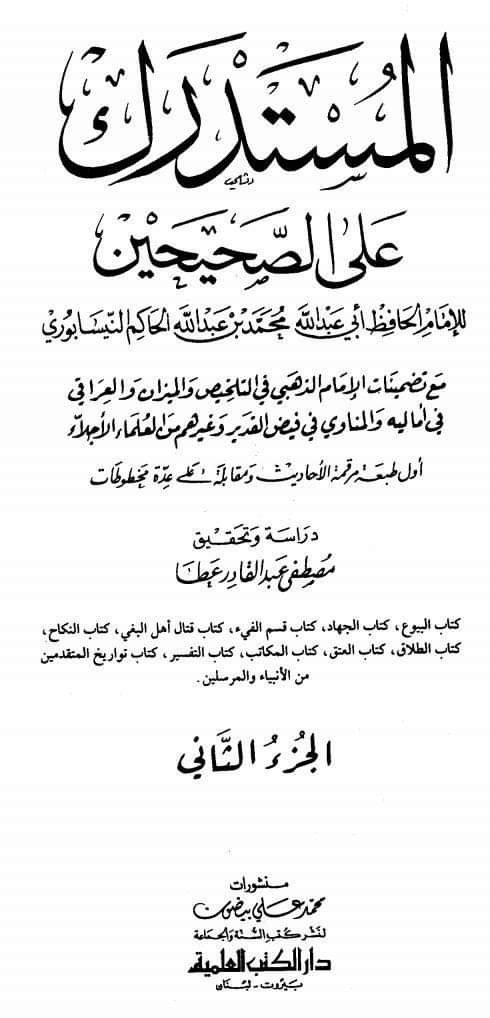 المُسْتَدْرَك
عَلَى الصَّحِيحَيْن
للإمَامِ الحَافِظ أبِي عَبْدِ اللَّه مُحَمَّد بْنِ عَبْدِ اللَّه الحَاكِم النَّيْسَابُورِي
مَعَ تضمينات الإمَام الذهَبي في التلخيص والميزان والعِرَاقي
في أماليه والمناوي في فيض القدير وغيرهم من العُلمَاء الأجلاء
أول طبعَة مرقمة الأحاديث ومقابلة على عدة مخطوطات
دراسَة وتحقيق
مُصْطَفى عَبد القَادِر عَطَا
كتاب البيوع، كتاب الجهاد، كتاب قسم الفيء، كتاب قتال أهل البغي، كتاب النكاح،
كتاب الطلاق، كتاب العتق، كتاب المكاتب، كتاب التفسير، كتاب تواريخ المتقدمين
من الأنبياء والمرسلين.
الجُزءُ الثَّانِي
منشورات
محمد علي بيضون
لنَشر كُتب السُّنة والجماعة
دار الكتب العلمية
بيروت - لبنان